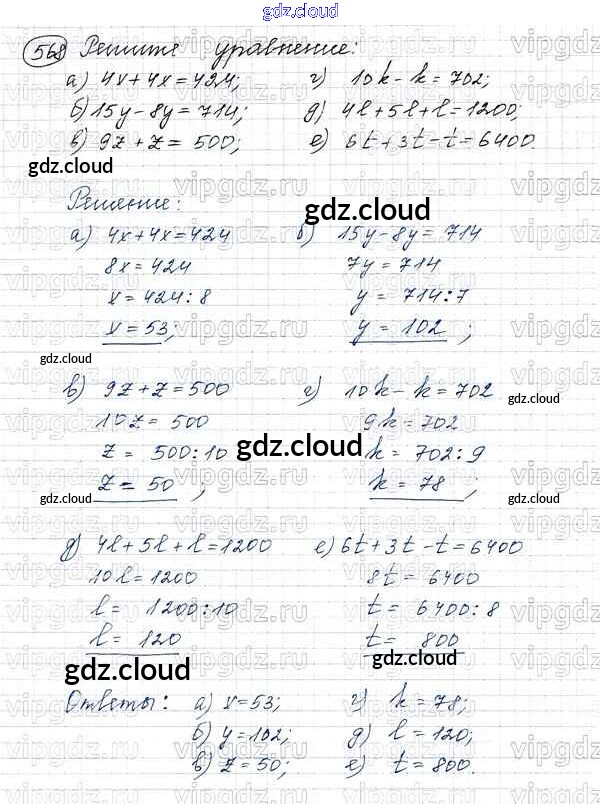 gdz.cloud
568 Решите уравнение:
а) 4x+4x=424; г) 10k-k=702;
б) 15y-8y=714; д) 4l+5l+l=1200;
в) 9z+z=500; е) 6t+3t-t=6400.
gdz.cloud gdz.cloud
Решение:
gdz.cloud
а) 4x+4x=424 б) 15y-8y=714
8x=424 7y=714
x=424:8 y=714:7
x=53; y=102;
gdz.cloud
в) 9z+z=500 г) 10k-k=702
gdz.cloud
10z=500 9k=702
z=500:10 k=702:9
gdz.cloud
z=50; k=78;
gdz.cloud gdz.cloud
д) 4l+5l+l=1200 е) 6t+3t-t=6400
10l=1200 8t=6400
l=1200:10 t=6400:8
l=120 t=800
gdz.cloud gdz.cloud
Ответы: а) x=53; г) k=78;
б) y=102; д) l=120;
в) z=50; е) t=800.
gdz.cloud gdz.cloud